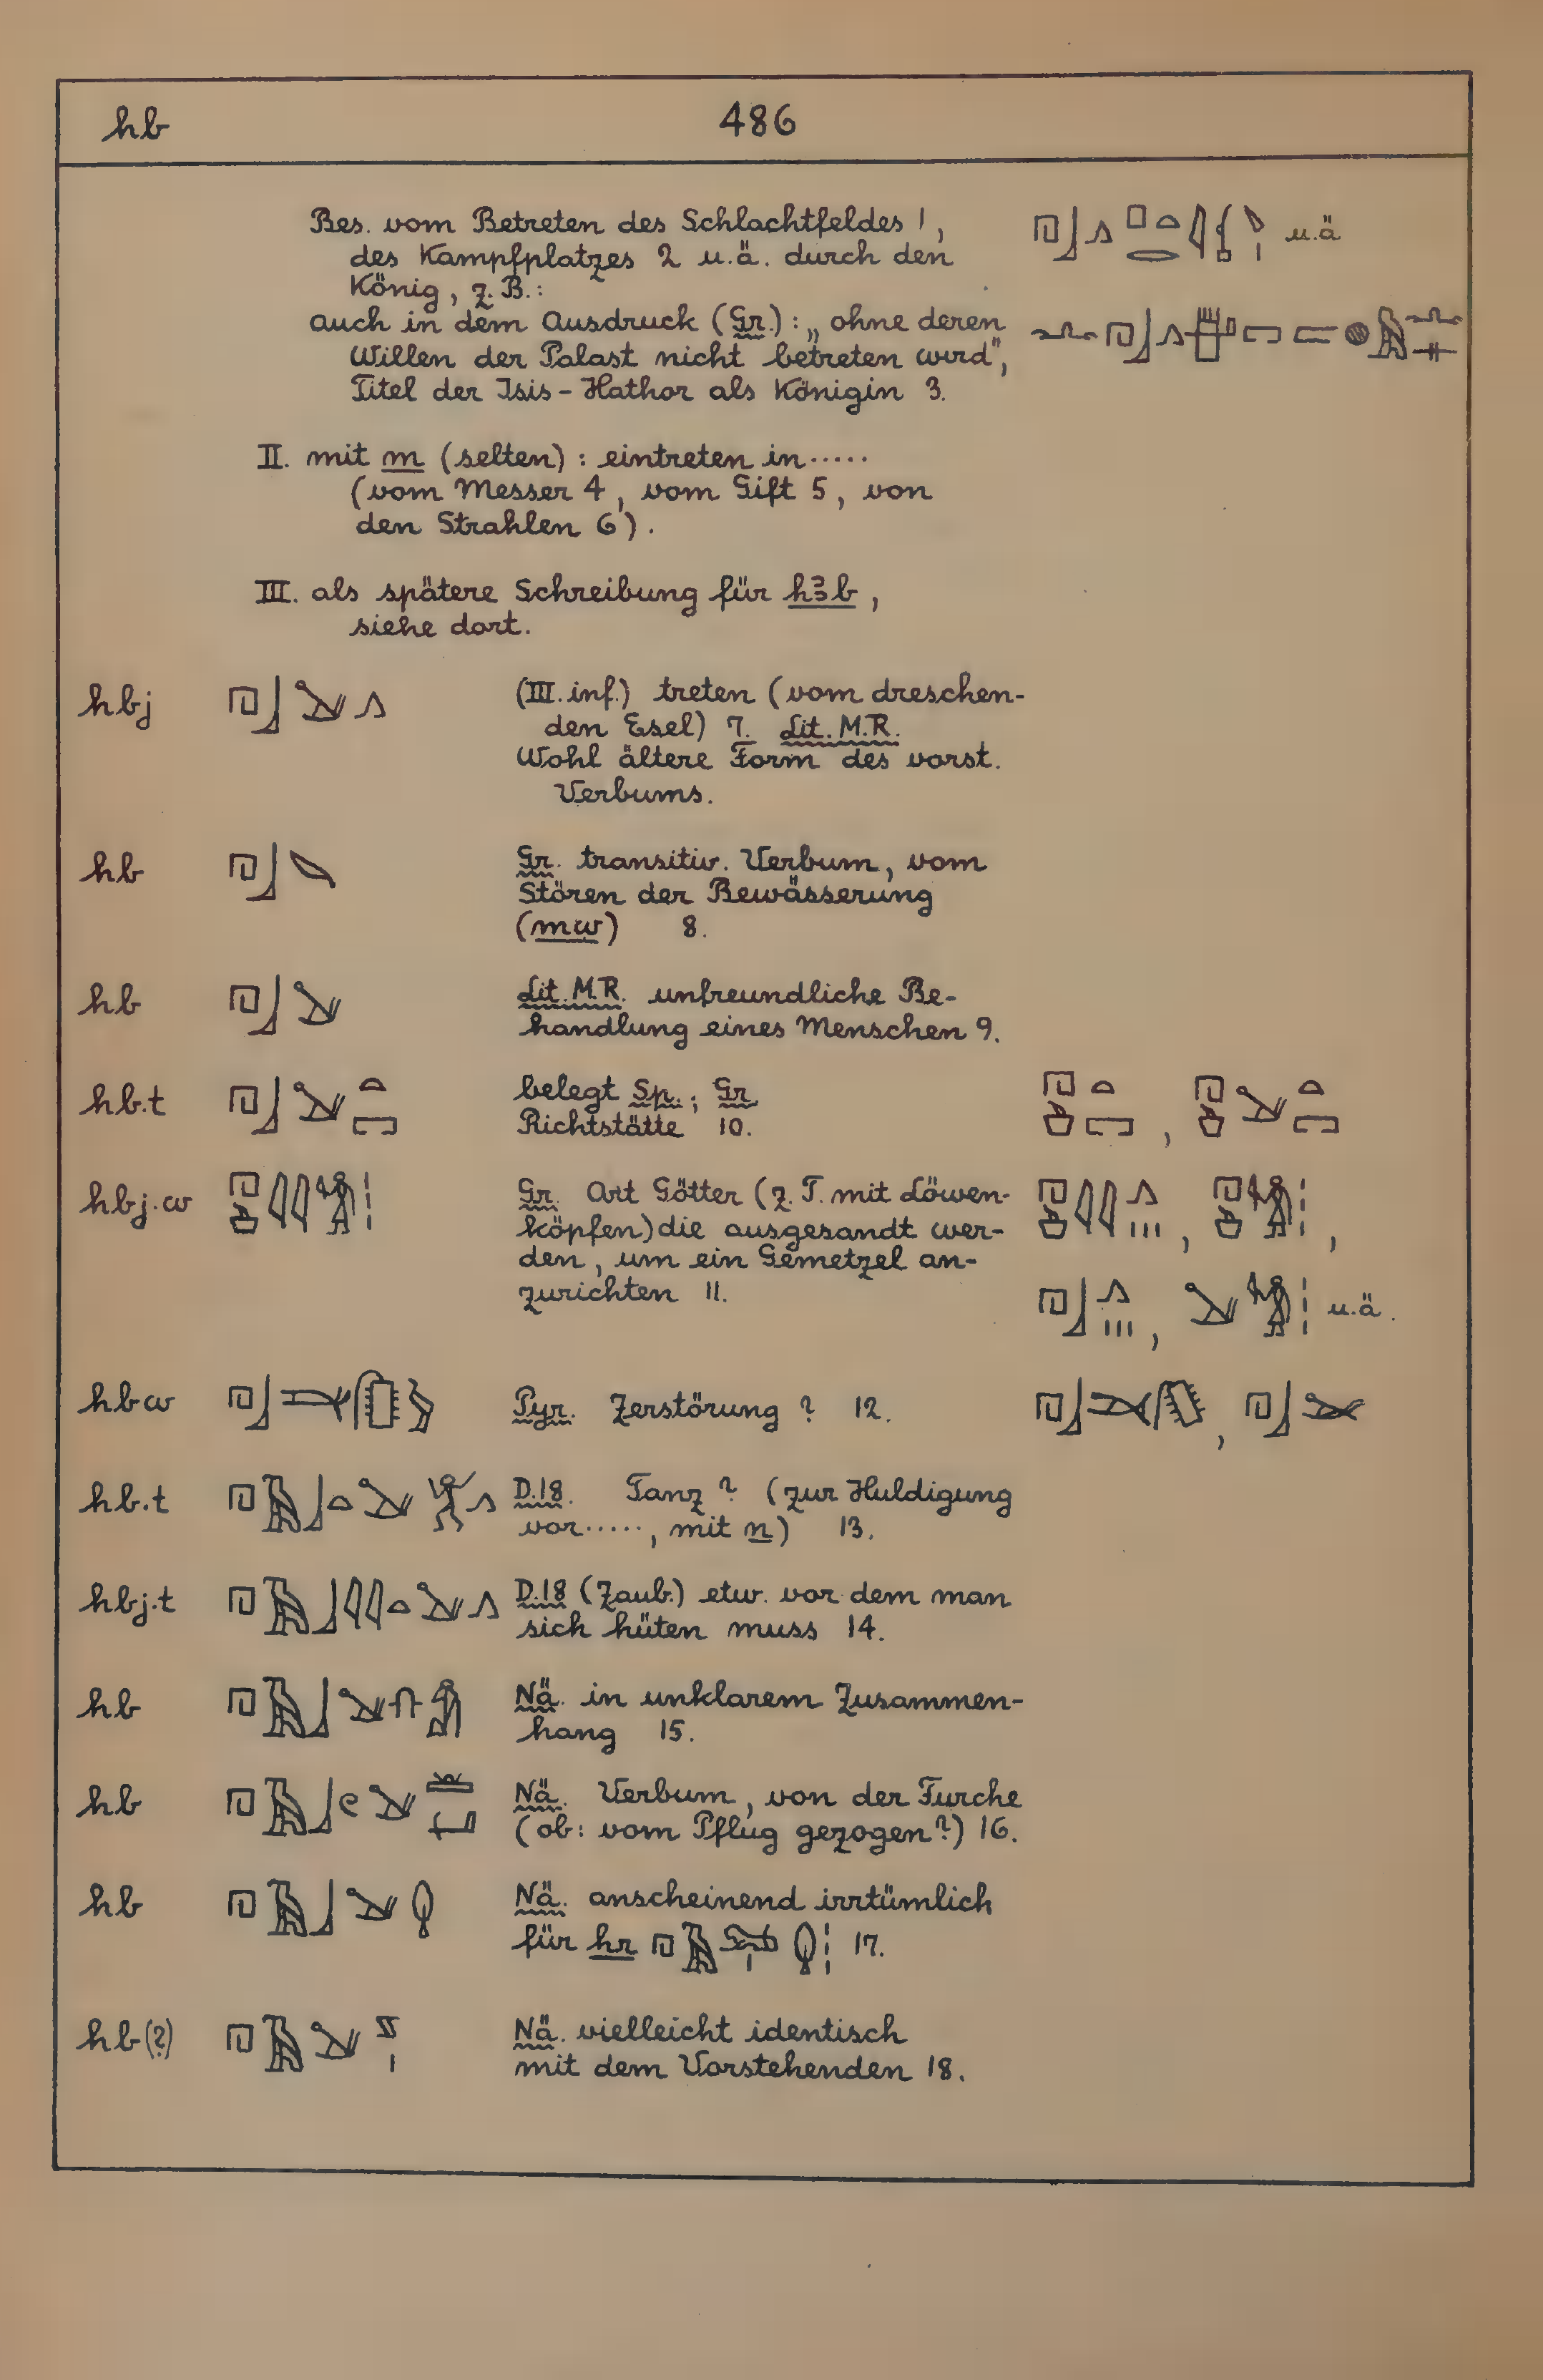 hb 486
Bes. vom Betreten des Schlachtfeldes 1, u.ä
des Kampfplatzes 2 u.ä. durch den
König, z.B.:
auch in dem Ausdruck (Gr.): „ohne deren
Willen der Palast nicht betreten wird",
Titel der Isis-Hathor als Königin 3.
II. mit m (selten): eintreten in.....
(vom Messer 4, vom Gift 5, von
den Strahlen 6).
III. als spätere Schreibung für hꜣb,
siehe dort.
hbj (III. inf.) treten (vom dreschen-
den Esel) 7. Lit. M.R.
Wohl ältere Form des vorst.
Verbums.
hb Gr. transitiv. Verbum, vom
Stören der Bewässerung
(mw) 8.
hb Lit. M.R. unfreundliche Be-
handlung eines Menschen 9.
hb.t belegt Sp.; Gr.
Richtstätte 10.
hbj.w Gr. Art Götter (z.T. mit Löwen-
köpfen) die ausgesandt wer-
den, um ein Gemetzel an-
zurichten 11. u.ä.
hbw Pyr. Zerstörung? 12.
hb.t D.18. Tanz? (zur Huldigung
vor....., mit n) 13.
hbj.t D.18 (Zaub.) etw. vor dem man
sich hüten muss 14.
hb Nä. in unklarem Zusammen-
hang 15.
hb Nä. Verbum, von der Furche
(ob: vom Pflug gezogen?) 16.
hb Nä. anscheinend irrtümlich
für hr 17.
hb(?) Nä. vielleicht identisch
mit dem Vorstehenden 18.